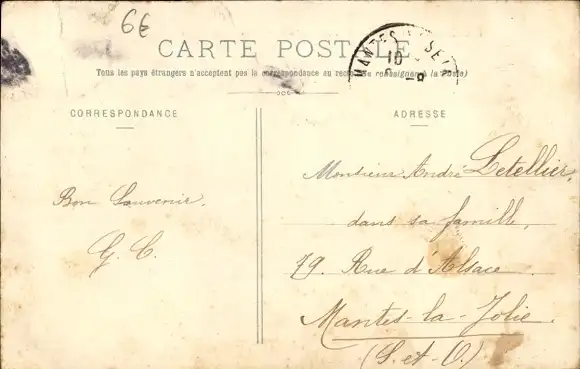 6€
CARTE POSTALE
Tous les pays étrangers n'acceptent pas la correspondance au recto (se renseigner à la Poste)
MANTES
10
CORRESPONDANCE
ADRESSE
Bon Souvenir.
G. C.
Monsieur André Letellier,
dans sa famille,
79. Rue d'Alsace.
Mantes-la-Jolie.
(S. et O.)